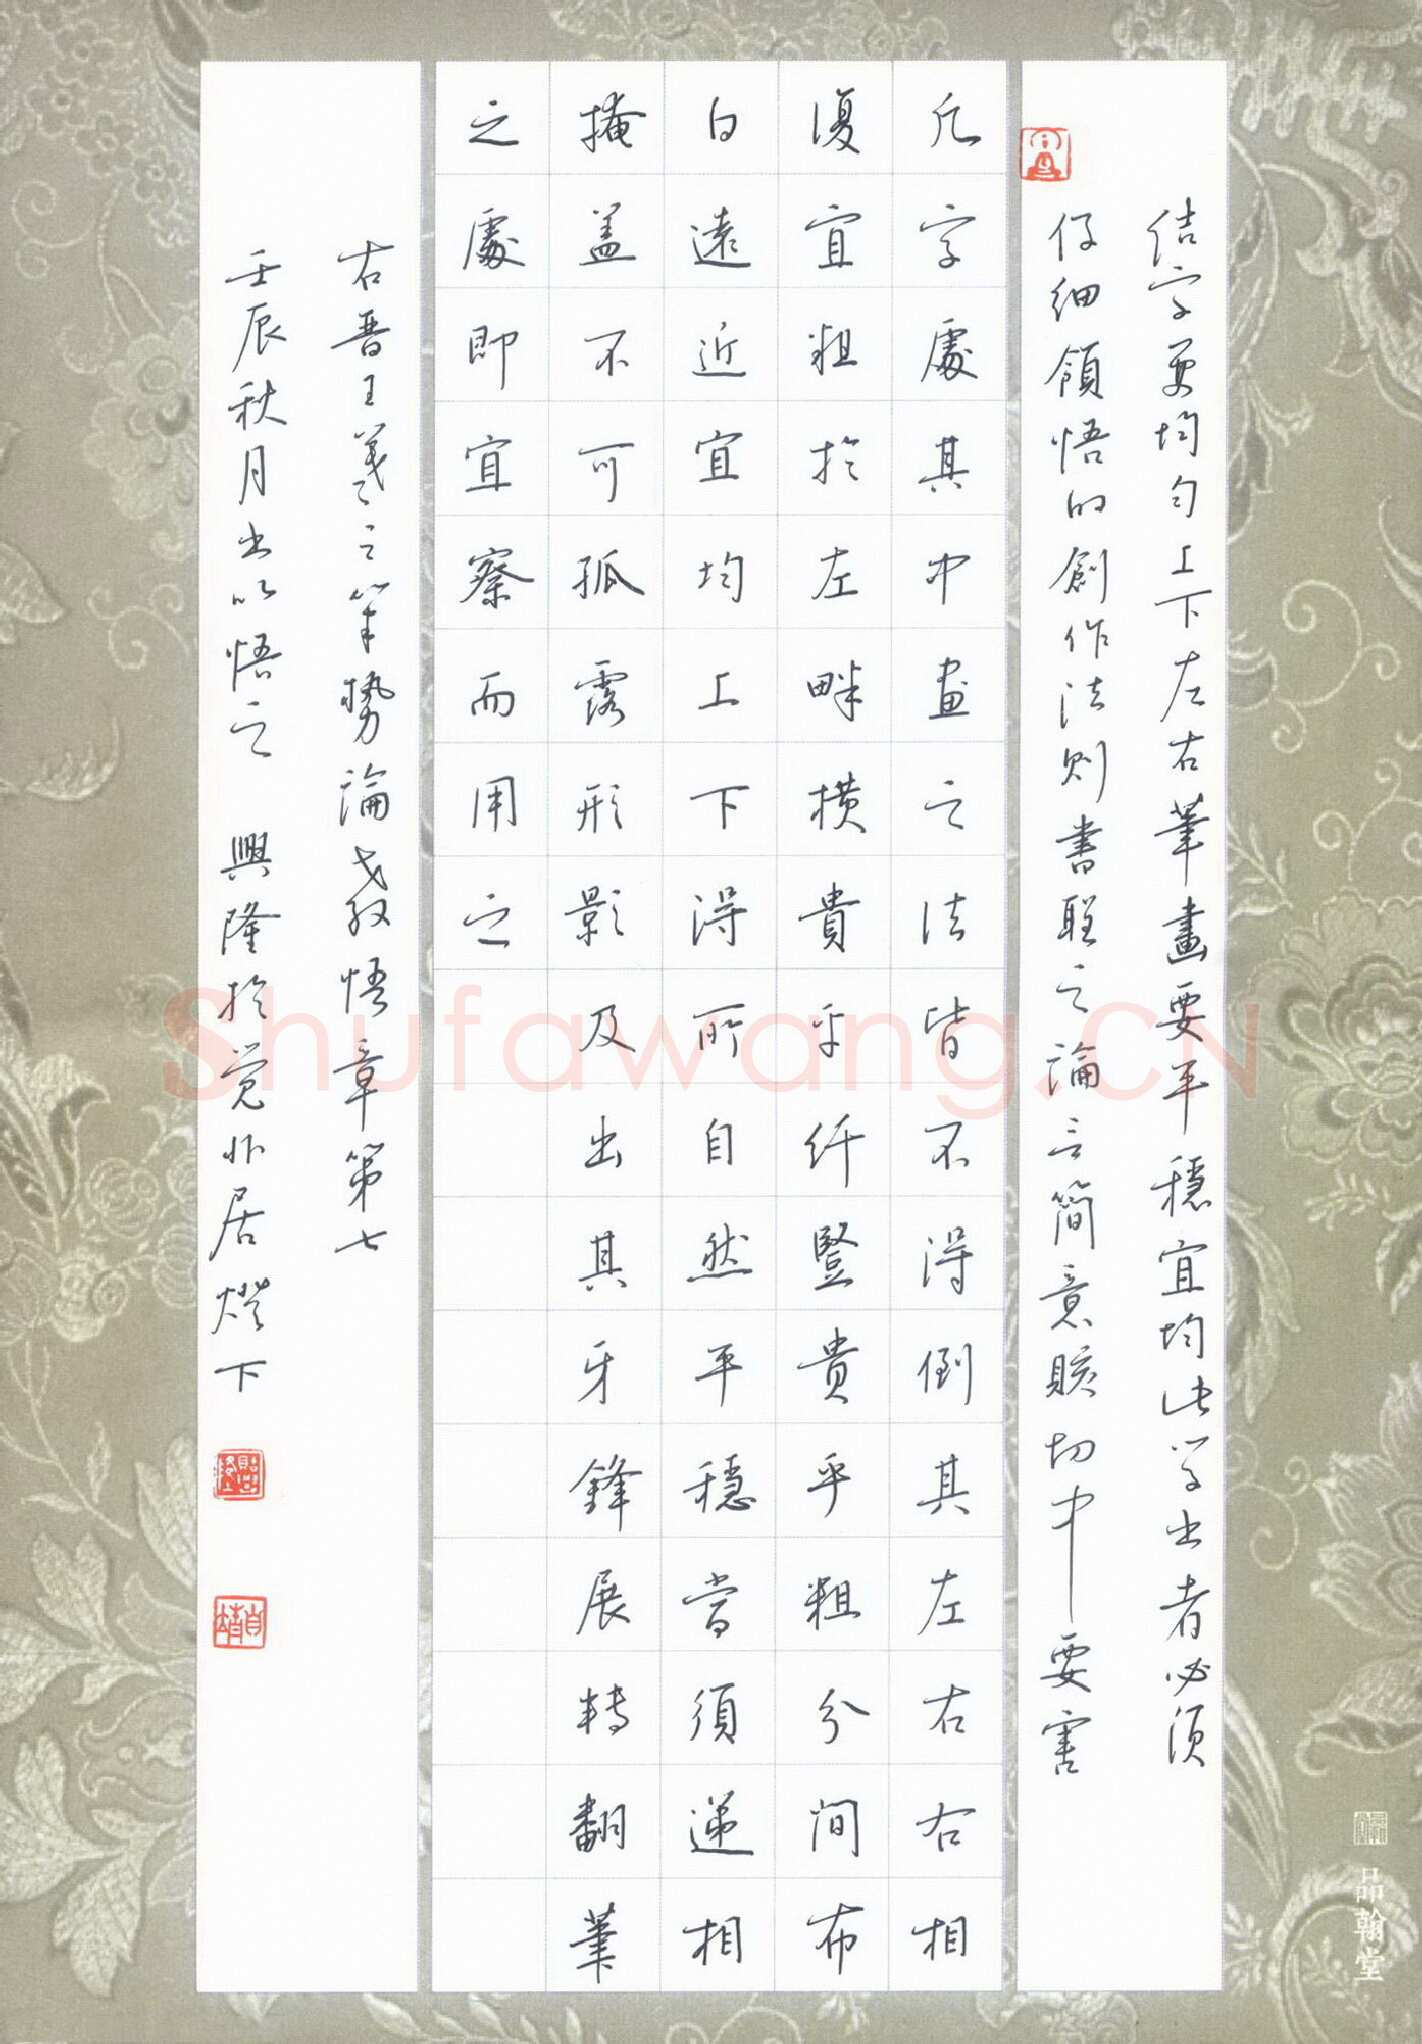 結字要均勻上下左右筆畫要平穩宜均此学书者必须
仔细領悟的創作法则書聖之論言簡意賅切中要害
凡字處其中畫之法皆不得倒其左右右相
復宜粗於左畔横貴乎纤豎貴乎粗分間布
白遠近宜均上下得所自然平穩當須递相
掩盖不可孤露形影及出其牙鋒展轉翻筆
之處即宜察而用之
右晋王羲之笔勢論教悟章第七
壬辰秋月书以悟之 興隆於觉非居燈下
品翰堂
Shufawang.CN